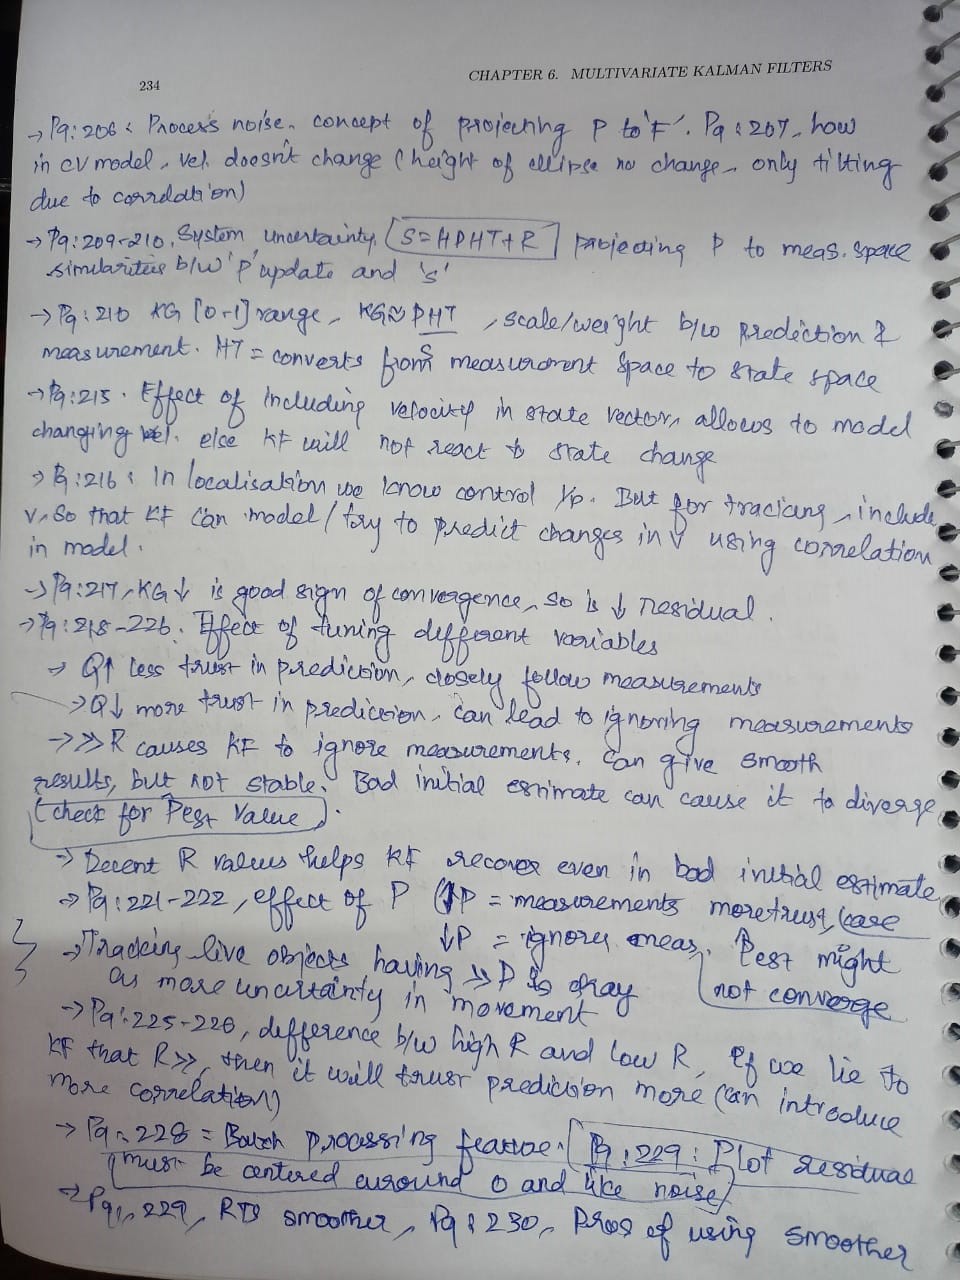 234
CHAPTER 6. MULTIVARIATE KALMAN FILTERS
→ Pg: 206: Process noise, concept of projecting P to 'F'. Pg: 207, how
in CV model, vel. doesn't change (height of ellipse no change, only tilting
due to correlation)
→ Pg: 209-210, System uncertainty, [S=HPHT+R] projecting P to meas. space
similarities b/w 'P' update and 'S'
→ Pg: 210 KG [0-1] range, KG≈ PHT/S, scale/weight b/w prediction &
measurement. HT = converts from measurement space to state space
→ Pg: 215. Effect of including velocity in state vector, allows to model
changing vel. else KF will not react to state change
→ Pg: 216: In localisation we know control i/p. But for tracking, include
v, So that KF can model/try to predict changes in v using correlation
in model.
→ Pg: 217, KG↓ is good sign of convergence, so is ↓ residual.
→ Pg: 218-226. Effect of tuning different variables
→ Q↑ less trust in prediction, closely follow measurements
→ Q↓ more trust in prediction, can lead to ignoring measurements
→ >> R causes KF to ignore measurements. Can give smooth
results, but not stable. Bad initial estimate can cause it to diverge
(check for Pest Value).
→ Decent R values helps KF recover even in bad initial estimate
→ Pg: 221-222, effect of P (↑P = measurements more trust, case
↓P = ignores meas. Pest might
not converge
→ Tracking live objects having >> P is okay
as more uncertainty in movement
→ Pg: 225-226, difference b/w high R and low R, If we lie to
KF that R>>, then it will trust prediction more (can introduce
more correlation)
→ Pg: 228 = Batch processing feature. Pg: 229: Plot residual
(must be centered around 0 and like noise)
→ Pg: 229, RTS smoother, Pg: 230, Pros of using smoother